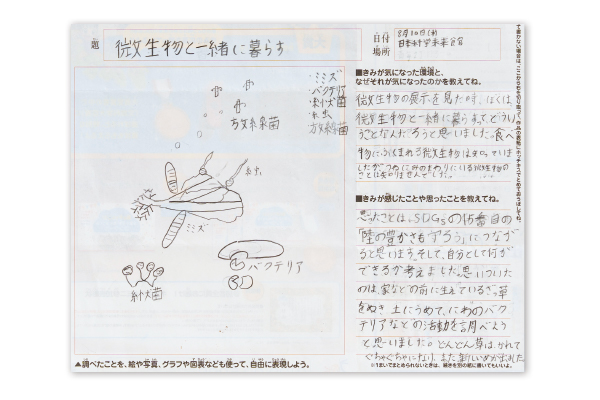 題
微生物と一緒に暮らす
日付
8月10日(木)
場所
日本科学未来館
ミミズ
・バクテリア
・糸状菌
・幼虫
放線菌
放線菌
幼虫
ミミズ
バクテリア
糸状菌
▲調べたことを、絵や写真、グラフや図表なども使って、自由に表現しよう。
■きみが気になった環境と、
なぜそれが気になったのかを教えてね。
微生物の展示を見た時、ぼくは、
微生物と一緒に暮らすってどうい
うことなんだろうと思いました。食べ
物にふくまれる微生物は知っていま
したがつねにみのまわりにいる微生物の
ことは知りませんでした。
■きみが感じたことや思ったことを教えてね。
思ったことは、SDGsの15番目の
「陸の豊かさも守ろう」につなが
ると思います。そして、自分として何が
できるか考えました。思いついた
のは、家などの前に生えているざっ草
をぬき、土にうめて、にわのバク
テリアなどの活動を調べよう
と思いました。どんどん草は、かれて
くちゃくちゃになり、また、新しいめが出ました
※1まいでまとめられないときは、続きを別の紙に書いてもいいよ。